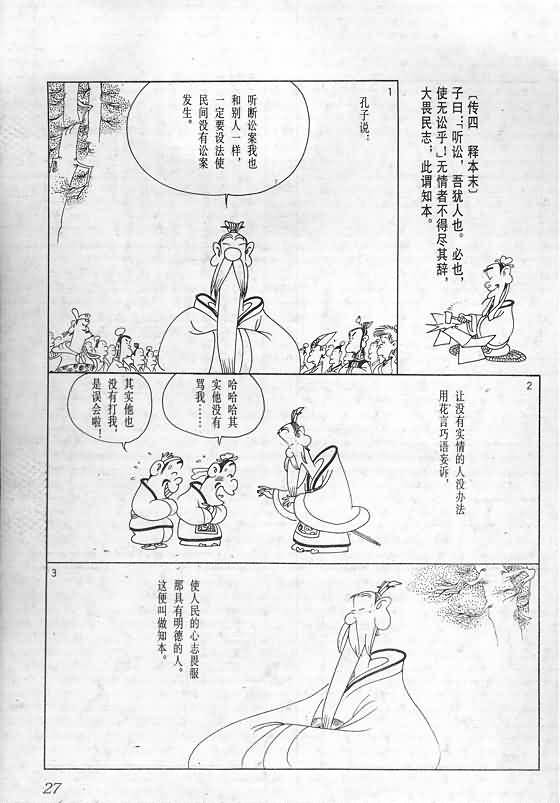 〔传四　释本末〕
子曰：“听讼，吾犹人也。必也，
使无讼乎！”无情者不得尽其辞，
大畏民志；此谓知本。
1
孔子说：
听断讼案我也
和别人一样，
一定要设法使
民间没有讼案
发生。
2
让没有实情的人没办法
用花言巧语妄诉，
哈哈哈其
实他没有
骂我……
其实他也
没有打我，
是误会啦！
3
使人民的心志畏服
那具有明德的人。
这便叫做知本。
27